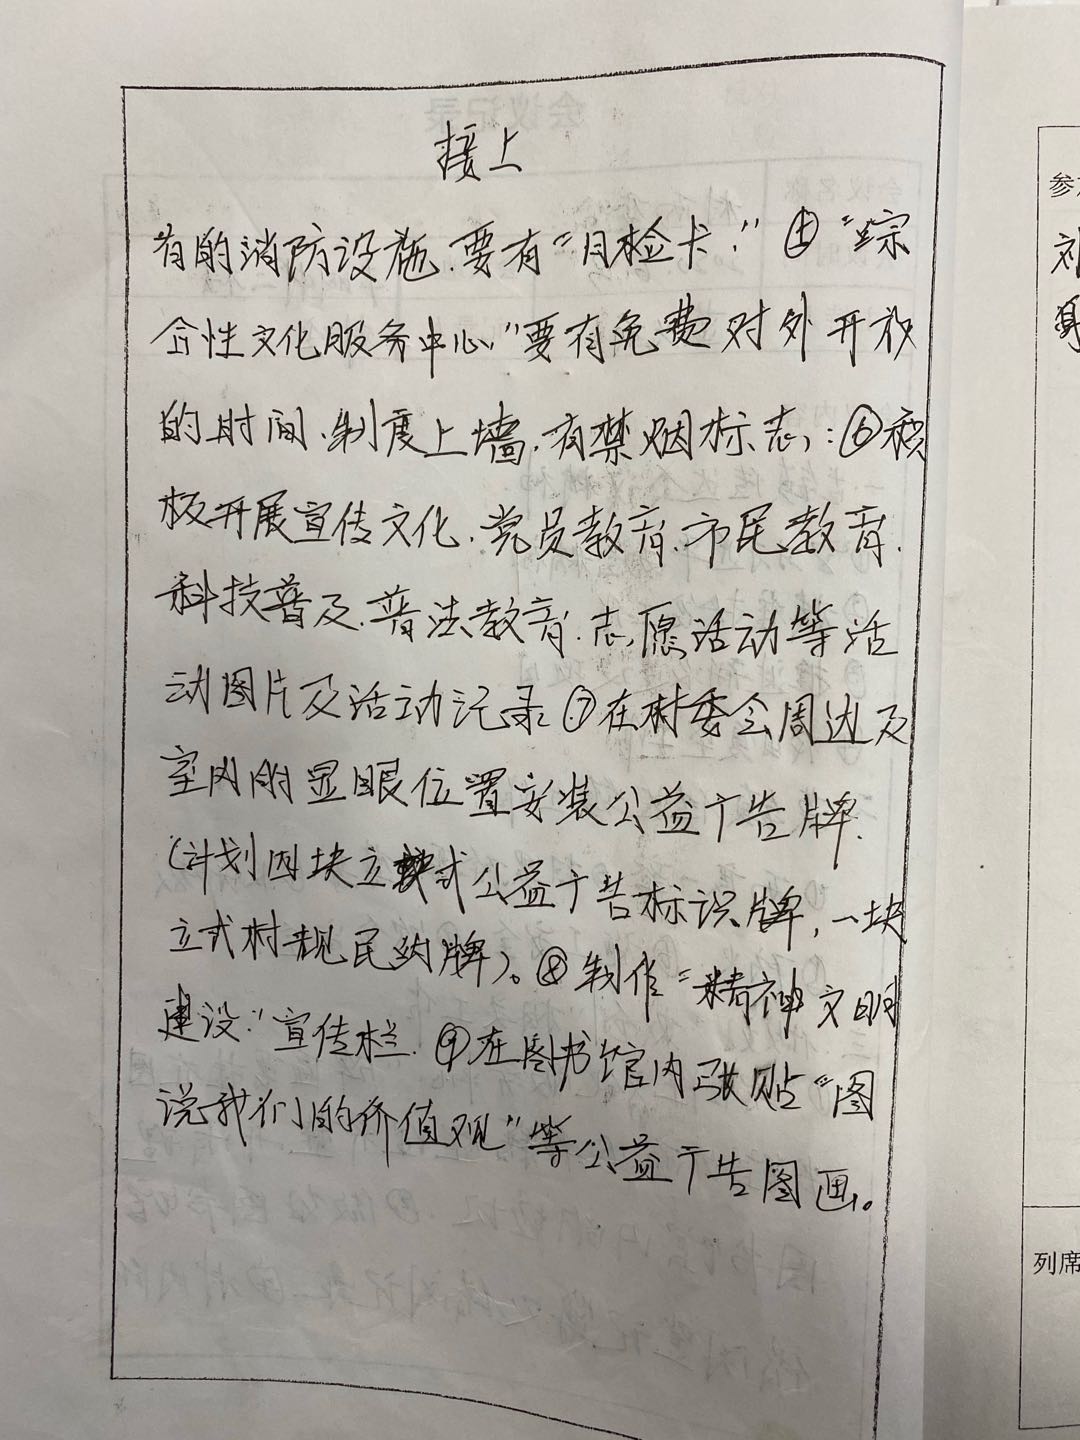 接上
有的消防设施.要有“月检卡.”⑤“综
合性文化服务中心”要有免费对外开放
的时间.制度上墙.有禁烟标志:⑥积
极开展宣传文化.党员教育.市民教育.
科技普及.普法教育.志愿活动等活
动图片及活动记录⑦在村委会周边及
室内的显眼位置安装公益广告牌.
(计划四块立式公益广告标识牌,一块
立式村规民约牌)。⑧制作“精神文明
建设”宣传栏.⑨在图书馆内张贴“图
说我们的价值观”等公益广告图画。
参
刘
列席